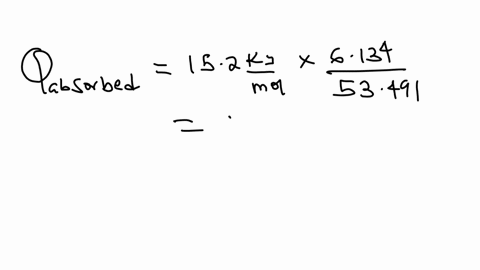 Qabsorbed = 15.2 KJ/mol × 6.134/53.491
=